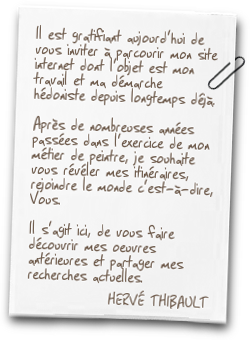 Il est gratifiant aujourd'hui de
vous inviter à parcourir mon site
internet dont l'objet est mon
travail et ma démarche
hédoniste depuis longtemps déjà.
Après de nombreuses années
passées dans l'exercice de mon
métier de peintre, je souhaite
vous révéler mes itinéraires,
rejoindre le monde c'est-à-dire,
Vous.
Il s'agit ici, de vous faire
découvrir mes oeuvres
antérieures et partager mes
recherches actuelles.
HERVÉ THIBAULT